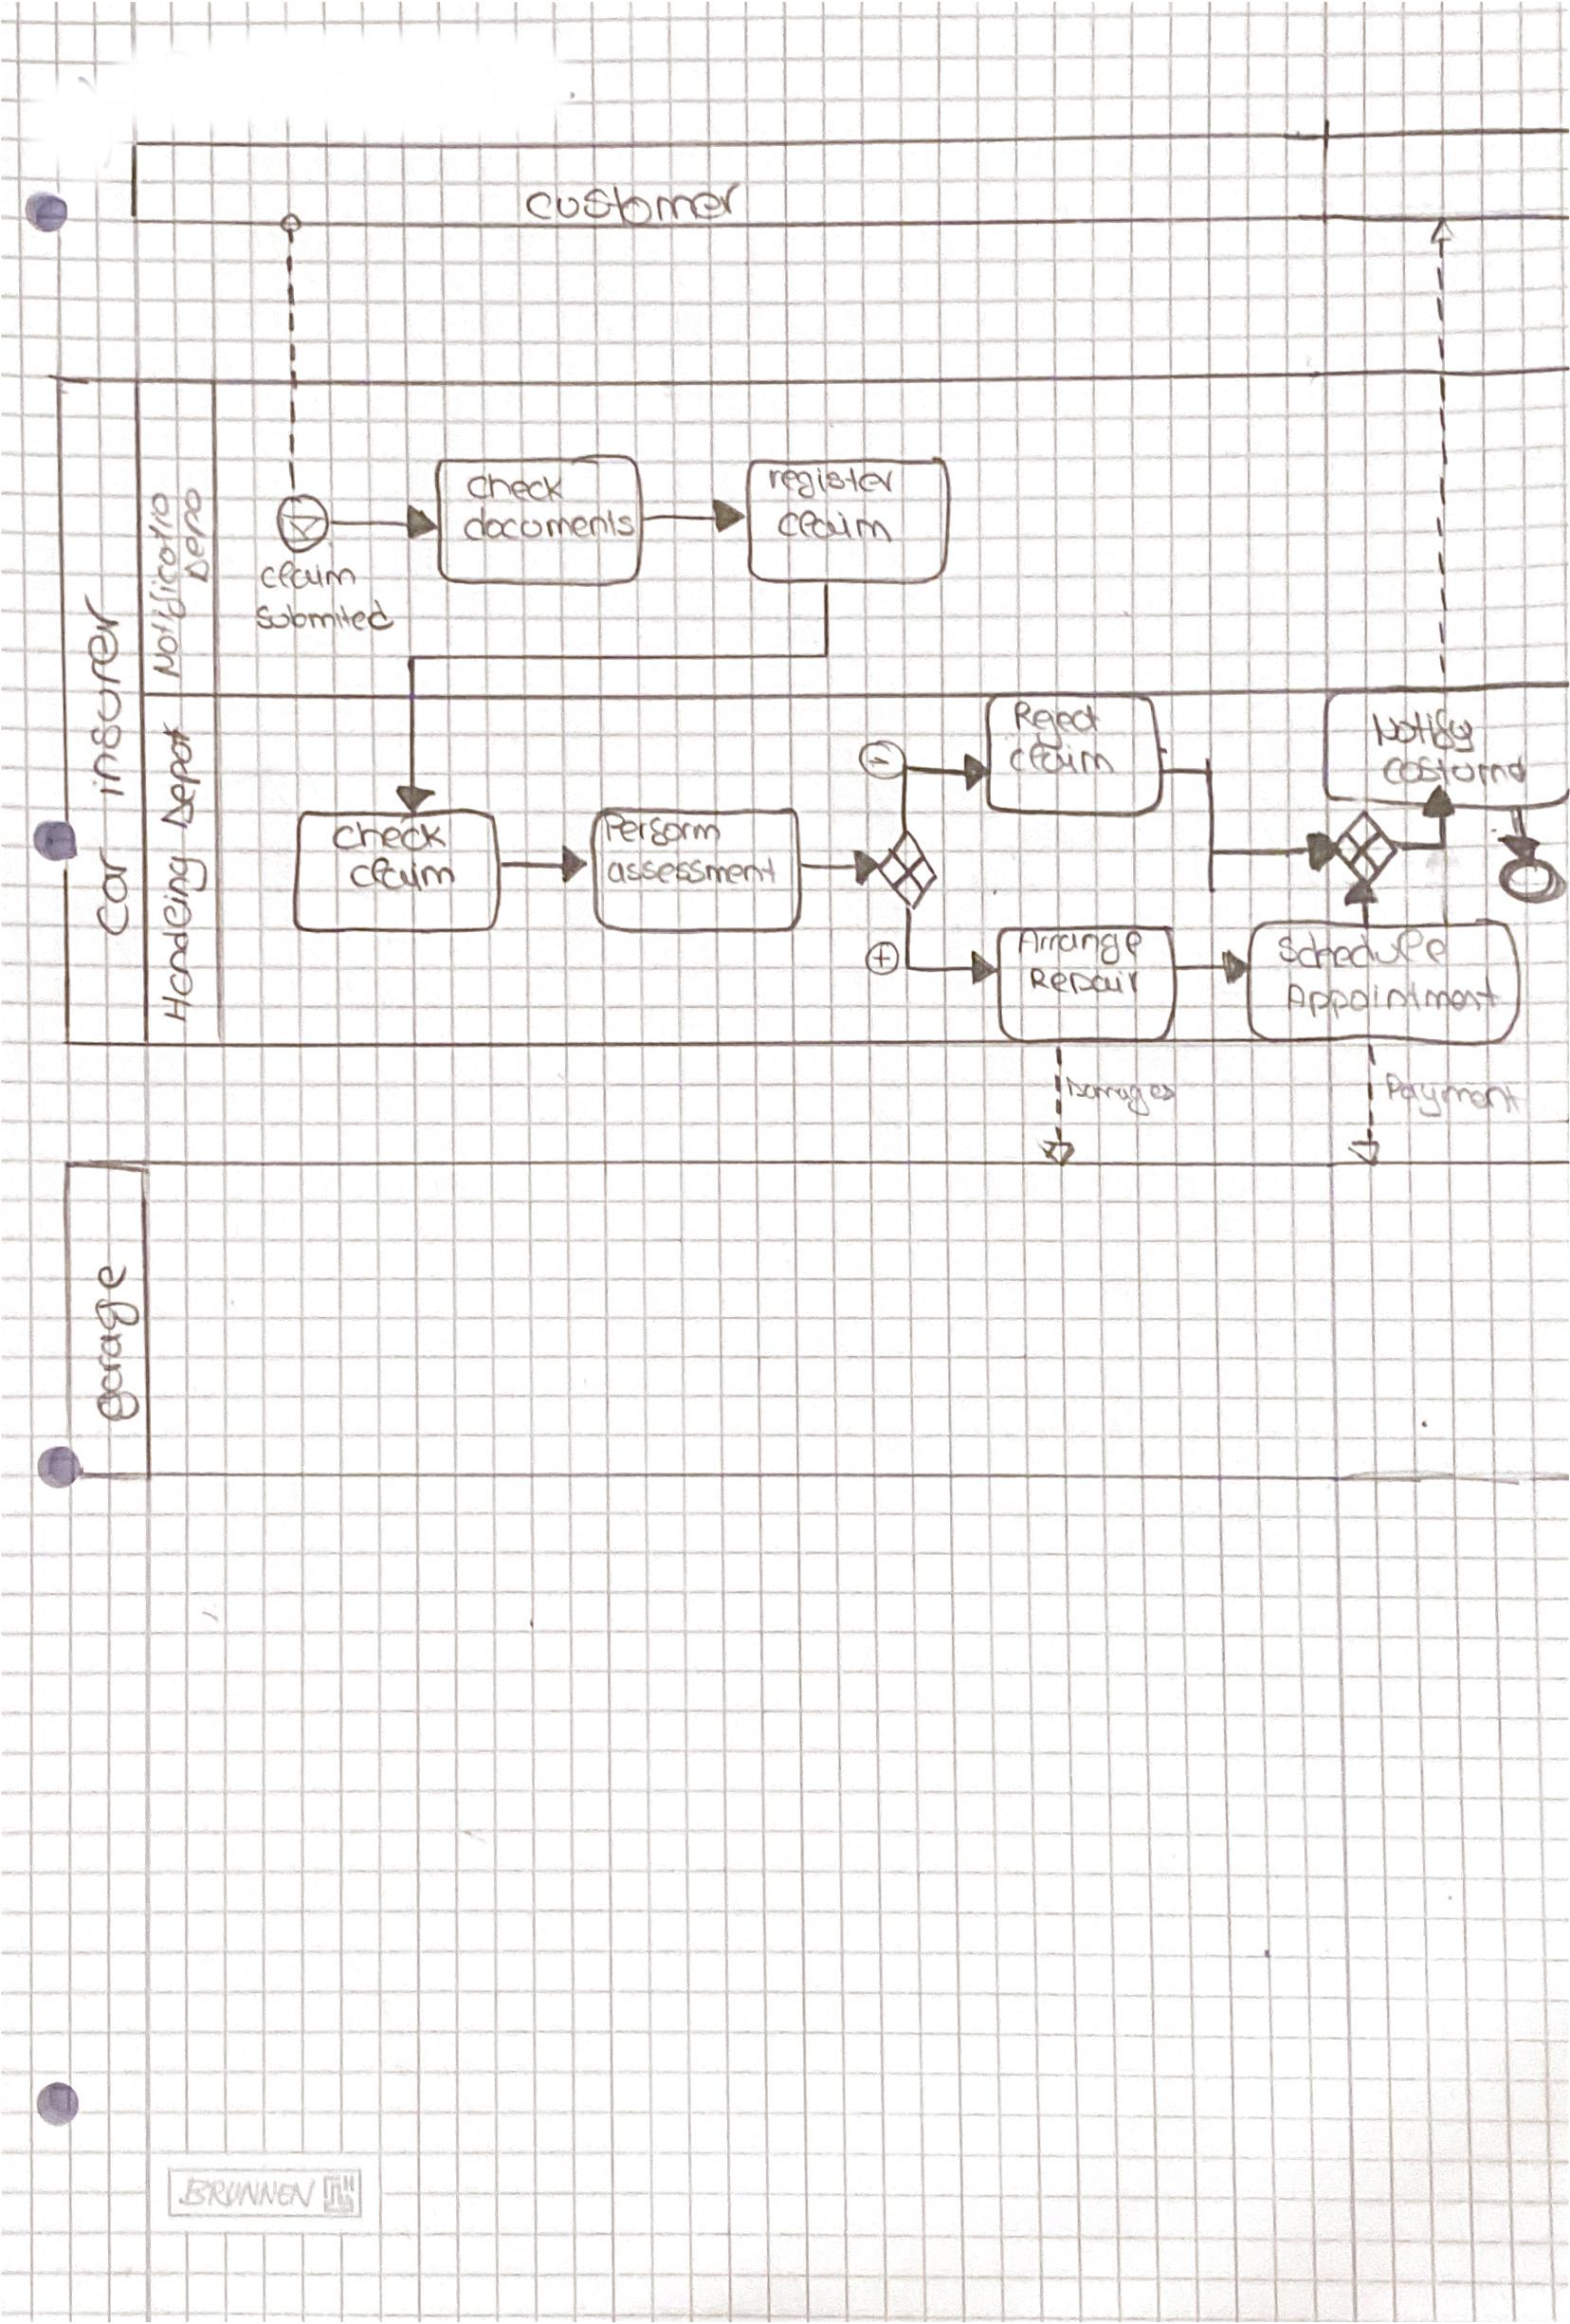 customer
car insurer
Notificatio
Depo
Handling Depot
claim
submited
check
documents
register
claim
check
claim
Perform
assessment
-
Reject
claim
+
Arrange
Repair
Schedule
Appointment
Notify
Damages
Payment
garage
BRUNNEN